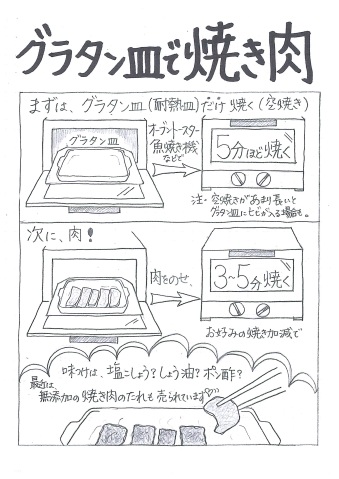 グラタン皿で焼き肉
まずは、グラタン皿(耐熱皿)だけ焼く(空焼き)
グラタン皿
オーブントースター
魚焼き機
などで
5分ほど焼く
注・空焼きがあまり長いと
グラタン皿にヒビが入る場合も。
次に、肉!
肉をのせ、
3〜5分焼く
お好みの焼き加減で
味つけは、塩こしょう?しょう油?ポン酢?
最近は
無添加の焼き肉のたれも売られています♡